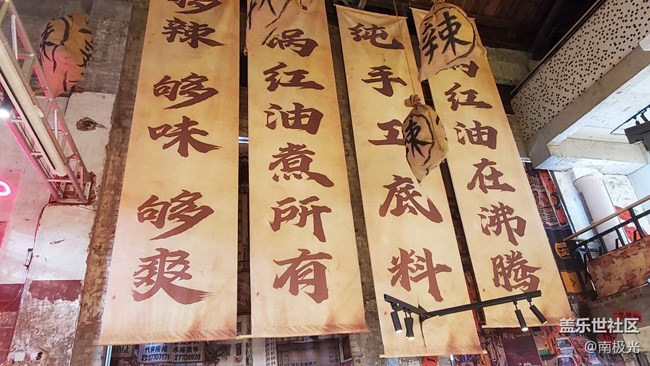 够辣 够味 够爽
锅红油煮所有
纯手工底料
锅红油在沸腾
辣
辣
盖乐世社区
@南极光